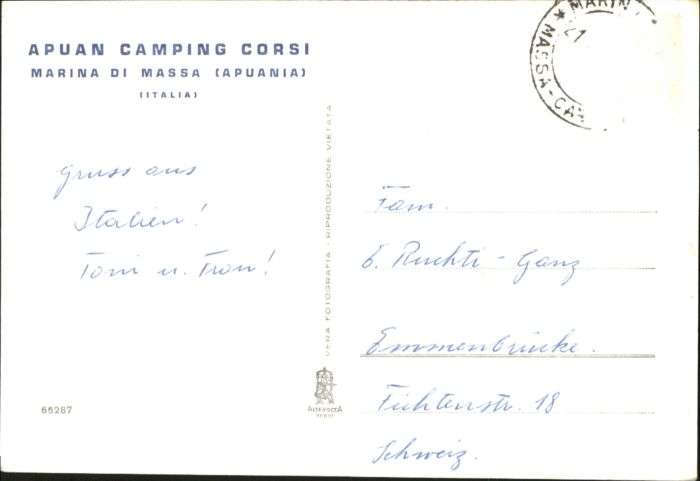 APUAN CAMPING CORSI
MARINA DI MASSA (APUANIA)
(ITALIA)
Gruss aus
Italien!
Toni u. Fron!
66287
VERA FOTOGRAFIA - RIPRODUZIONE VIETATA
ALTEROCCA
TERNI
MARIN
MASSA-CAR
21
Fam.
E. Ruchti-Ganz
Emmenbrücke.
Fichtenstr. 18
Schweiz.